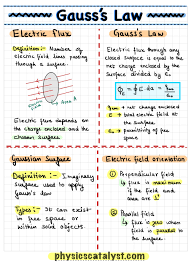 Gauss's Law
Electric flux
Definition:- Number of
electric field lines passing
through a surface.
Area A
Electric flux depends on
the charge enclosed and the
chosen surface.
Gauss's Law
Electric flux through any
closed surface is equal to the
net charge enclosed by the
surface divided by ε₀
= net charge enclosed
E = total electric field at
the surface.
ε₀ = permittivity of free
space.
Gaussian Surface
Definition :- Imaginary
surface used to apply
Gauss's law
Types :- It can exist
in free space or
within solid objects
Electric field orientation
① Perpendicular field
flux is maximum
if the field and
area are
② Parallel field
flux is zero when
field is parallel to
the surface.
physicscatalyst.com